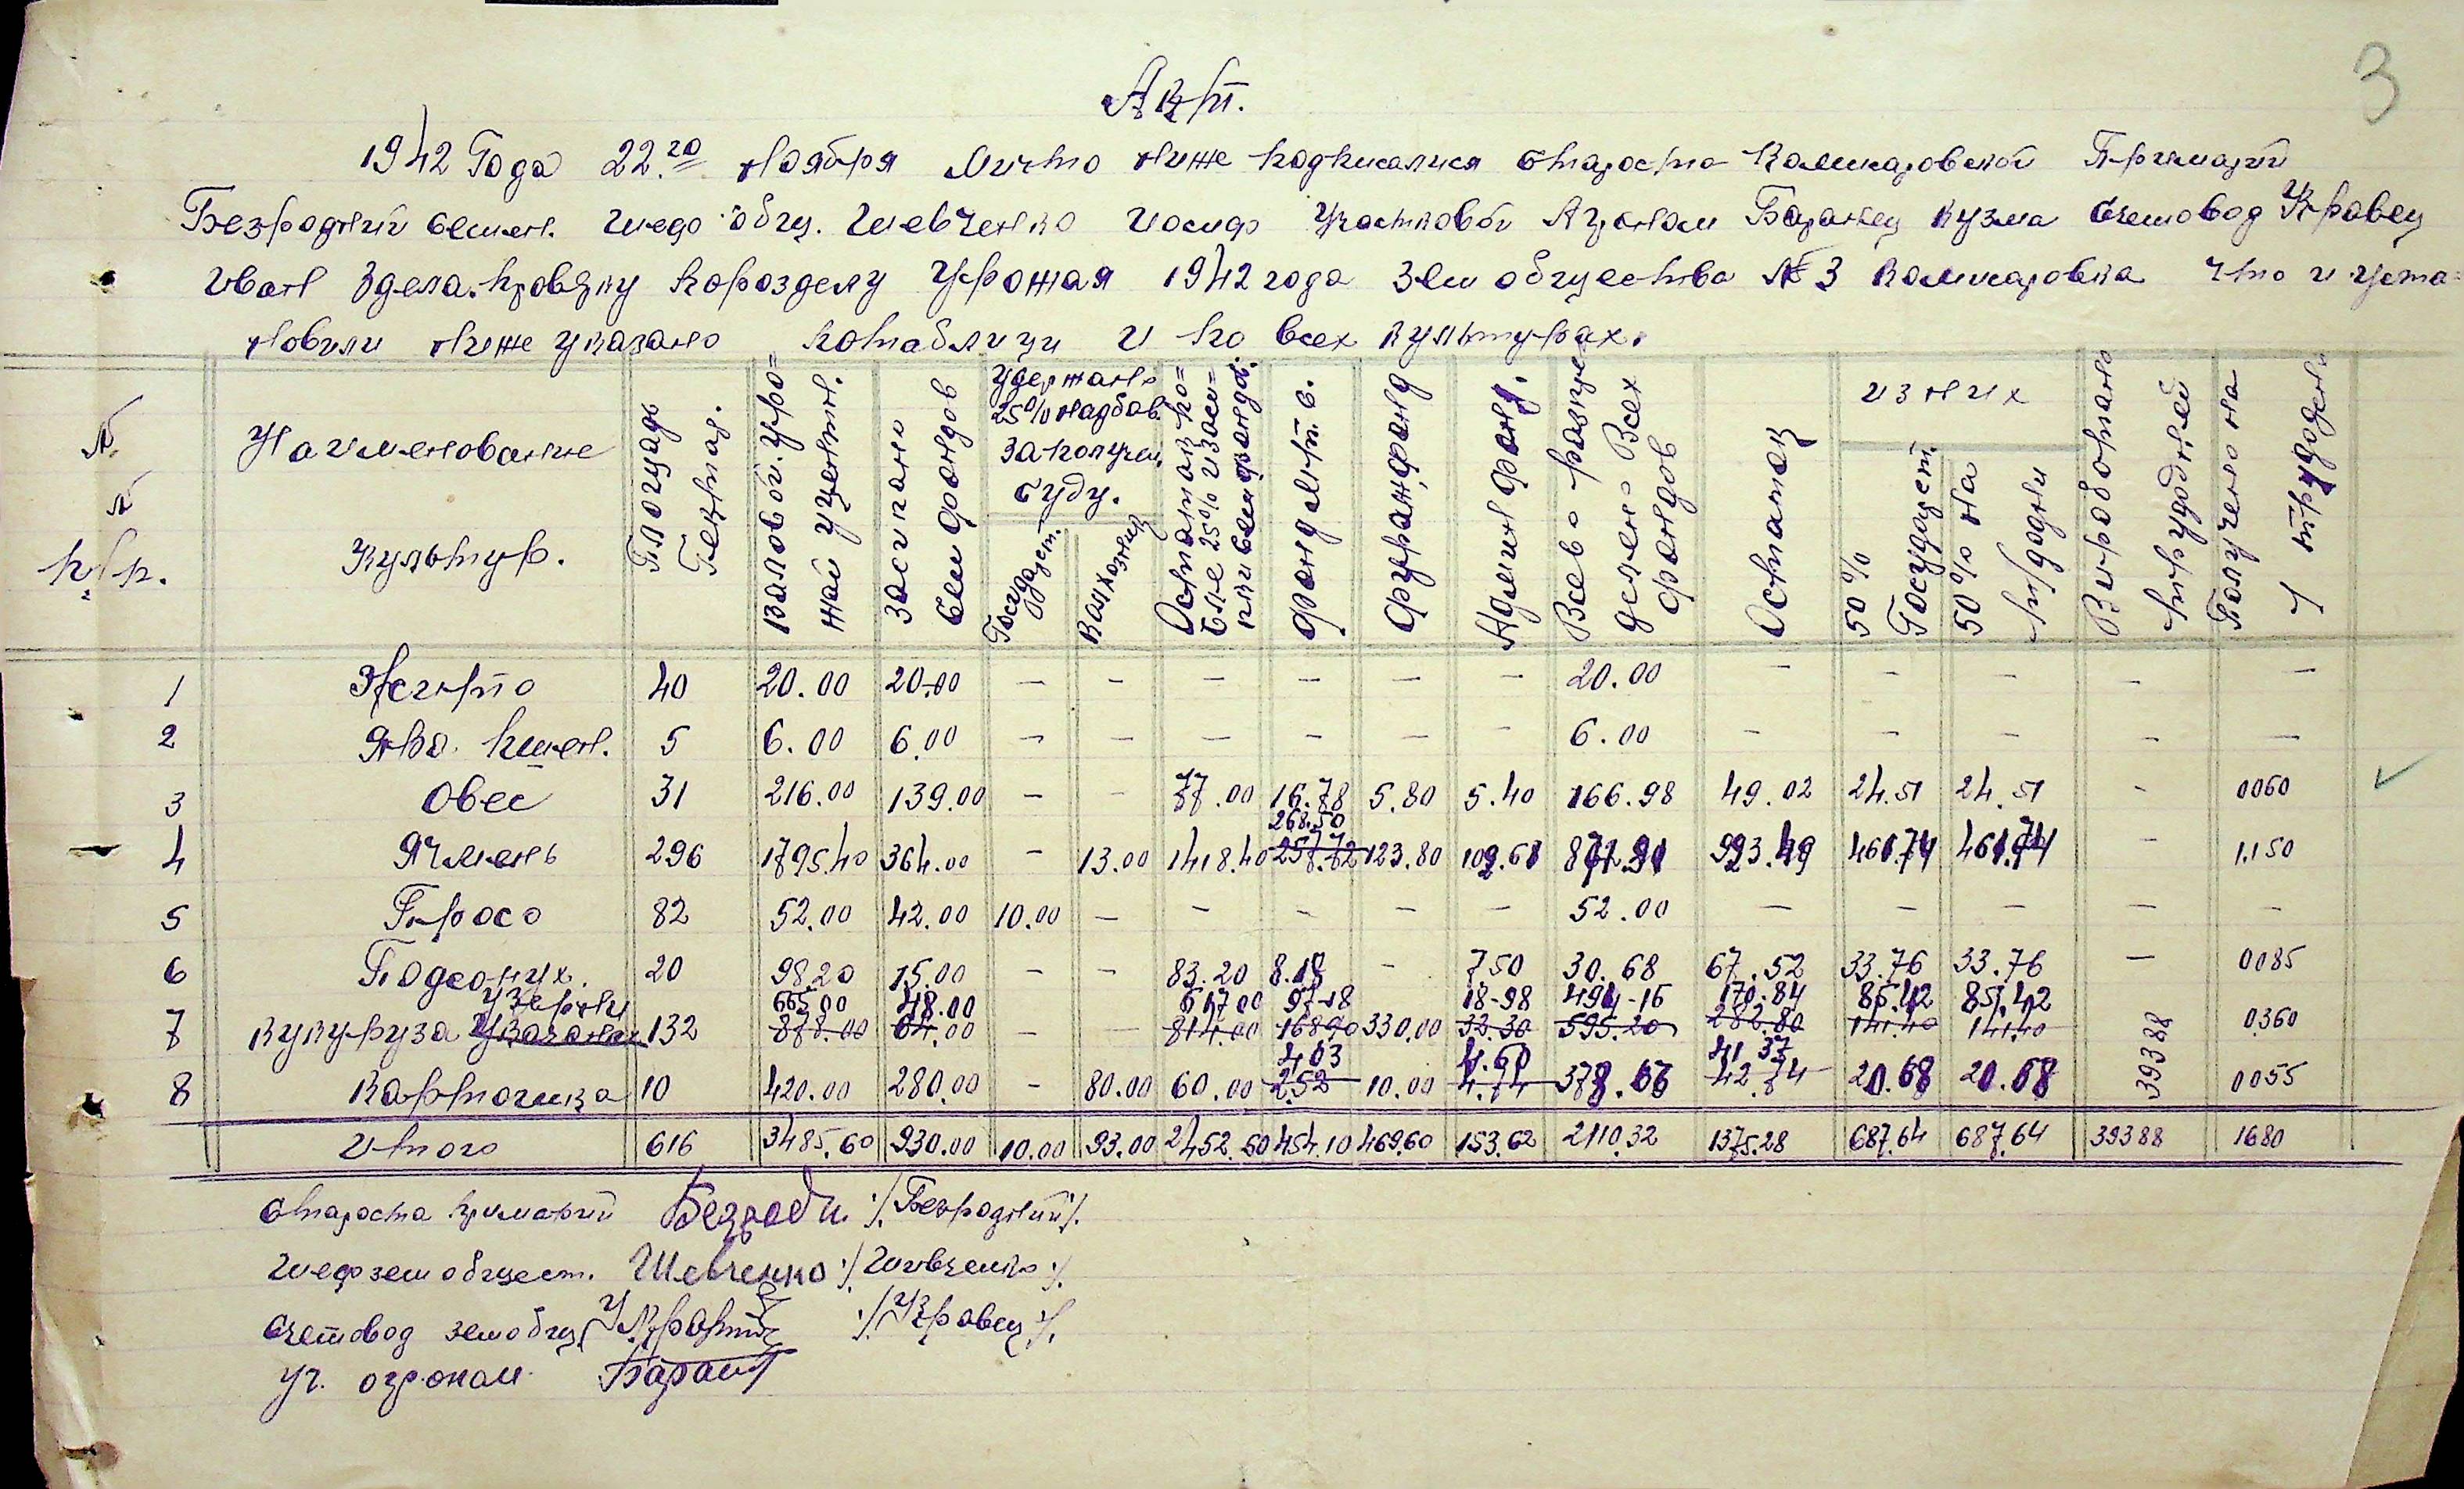 3
Акт.
1942 Года 22го Ноября Мы что ниже подписалися Староста Комисаровской Примарии
Безродний Семен. Шеф общ. Шевченко Иосиф Участковой Агроном Баранец Кузма Счетовод Кравец
Иван Здела. провэрку по розделу Урожая 1942 года Зем общества № 3 Комисаровка что и уста=
новили ниже указано по таблици и по всех культурах.
№ № п/п. | Наименование Культур. | Площадь Гектар. | Валовой Уро=жай у центн. | Засипано Сем фондов | Удержано 25% надбав. за получен. суду. Государст. Колхозник | Остаток после 25% и засип. фонд. | Фонд литт. б. | Фуражфонд | Админ фонд. | Всево разпределено Всех фондов | Остаток | из них 50% Государст. 50% на трудодни | Виробовано трудодней | Получено на 1 трудодень
1 Жито 40 20.00 20.00 — — — — — — 20.00 — — — — —
2 Яра. пшен. 5 6.00 6.00 — — — — — — 6.00 — — — — —
3 Овес 31 216.00 139.00 — — 77.00 16.78 5.80 5.40 166.98 49.02 24.51 24.51 - 0060
4 Ячмень 296 1795.40 364.00 — 13.00 1418.40 268.50 123.80 109.61 1.150
5 Просо 82 52.00 42.00 10.00 — — — — — 52.00 — — — — —
6 Подсолнух. 20 98.20 15.00 - - 83.20 8.18 - 7.50 30.68 67.52 33.76 33.76 — 0085
у зерни
665.00 48.00 617.00 97-18 18-98 494-16 170-84 85.42 85.42
7 Кукуруза 132 878.00 64.00 — — 814.00 168.90 330.00 32.30 595.20 282.80 141.40 141.40 39388 0.360
4.03 4.60 41.37
8 Картошка 10 420.00 280.00 - 80.00 60.00 2.52 10.00 4.74 42.74 20.68 20.68 0055
Итого 616 3485.60 930.00 10.00 93.00 2452.60 454.10 469.60 153.62 2110.32 1375.28 687.64 687.64 39388 1680
Староста примарии Безродн. /Безродний/.
Шеф зем общест. Шевченко /Шевченко/.
Счетовод земобщ. /Кравец/.
Уч. огроном Баранец